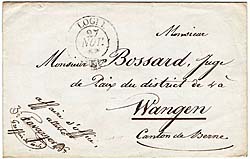 LOCLE
27
NOV.
Monsieur
Monsieur Bossard, Juge
de Paix du district de & à
Wangen
Canton de Berne
affaire d'office